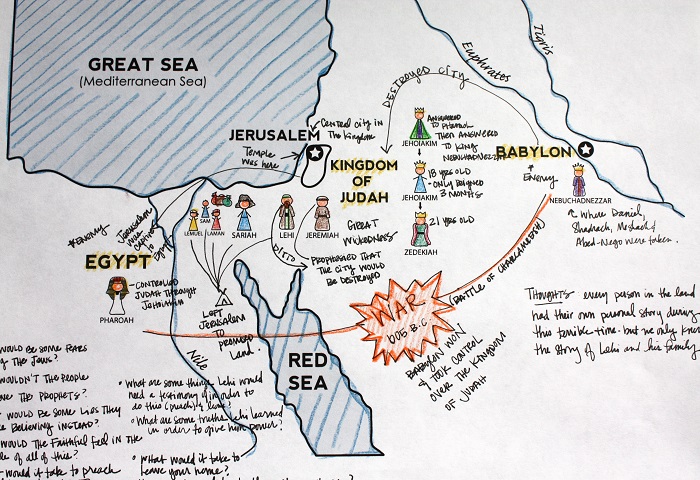 GREAT SEA
(Mediterranean Sea)
Euphrates
Tigris
DESTROYED CITY
JERUSALEM
Central city in
the kingdom
Temple
was here
KINGDOM
OF
JUDAH
ANSWERED
TO PHARAOH
THEN ANSWERED
TO KING
NEBUCHADNEZZAR
JEHOIAKIM
18 YEARS OLD
- ONLY REIGNED
3 MONTHS
JEHOIAKIM
21 YEARS OLD
ZEDEKIAH
BABYLON
ENEMY
NEBUCHADNEZZAR
Where Daniel,
Shadrach, Meshach &
Abed-Nego were taken.
SAM
LEMUEL
LAMAN
SARIAH
LEHI
JEREMIAH
GREAT
WICKEDNESS
DITTO
PROPHESIED THAT
THE CITY WOULD
BE DESTROYED
*ENEMY
Jerusalem
captive
to Egypt
EGYPT
- CONTROLLED
JUDAH THROUGH
PHAROAH
LEFT
JERUSALEM
TO
PROMISED
LAND.
Nile
RED
SEA
WAR
605 B.C.
(BATTLE OF CHARCAMESH)
BABYLON WON
& TOOK CONTROL
OVER THE KINGDOM
OF JUDAH
THOUGHTS every person in the land
had their own personal story during
this terrible time - but we only know
the story of Lehi and his family
WOULD BE SOME FEARS
THE JEWS?
WOULDN'T THE PEOPLE
THE PROPHETS?
WOULD BE SOME LIES THEY
BELIEVING INSTEAD?
WOULD THE FAITHFUL FEEL IN THE
OF ALL OF THIS?
would it take to preach
• What are some things Lehi would
need a testimony of in order to
do this (preach/leave)?
• What are some truths Lehi learned
in order to give him power?
• What would it take to
leave your home?